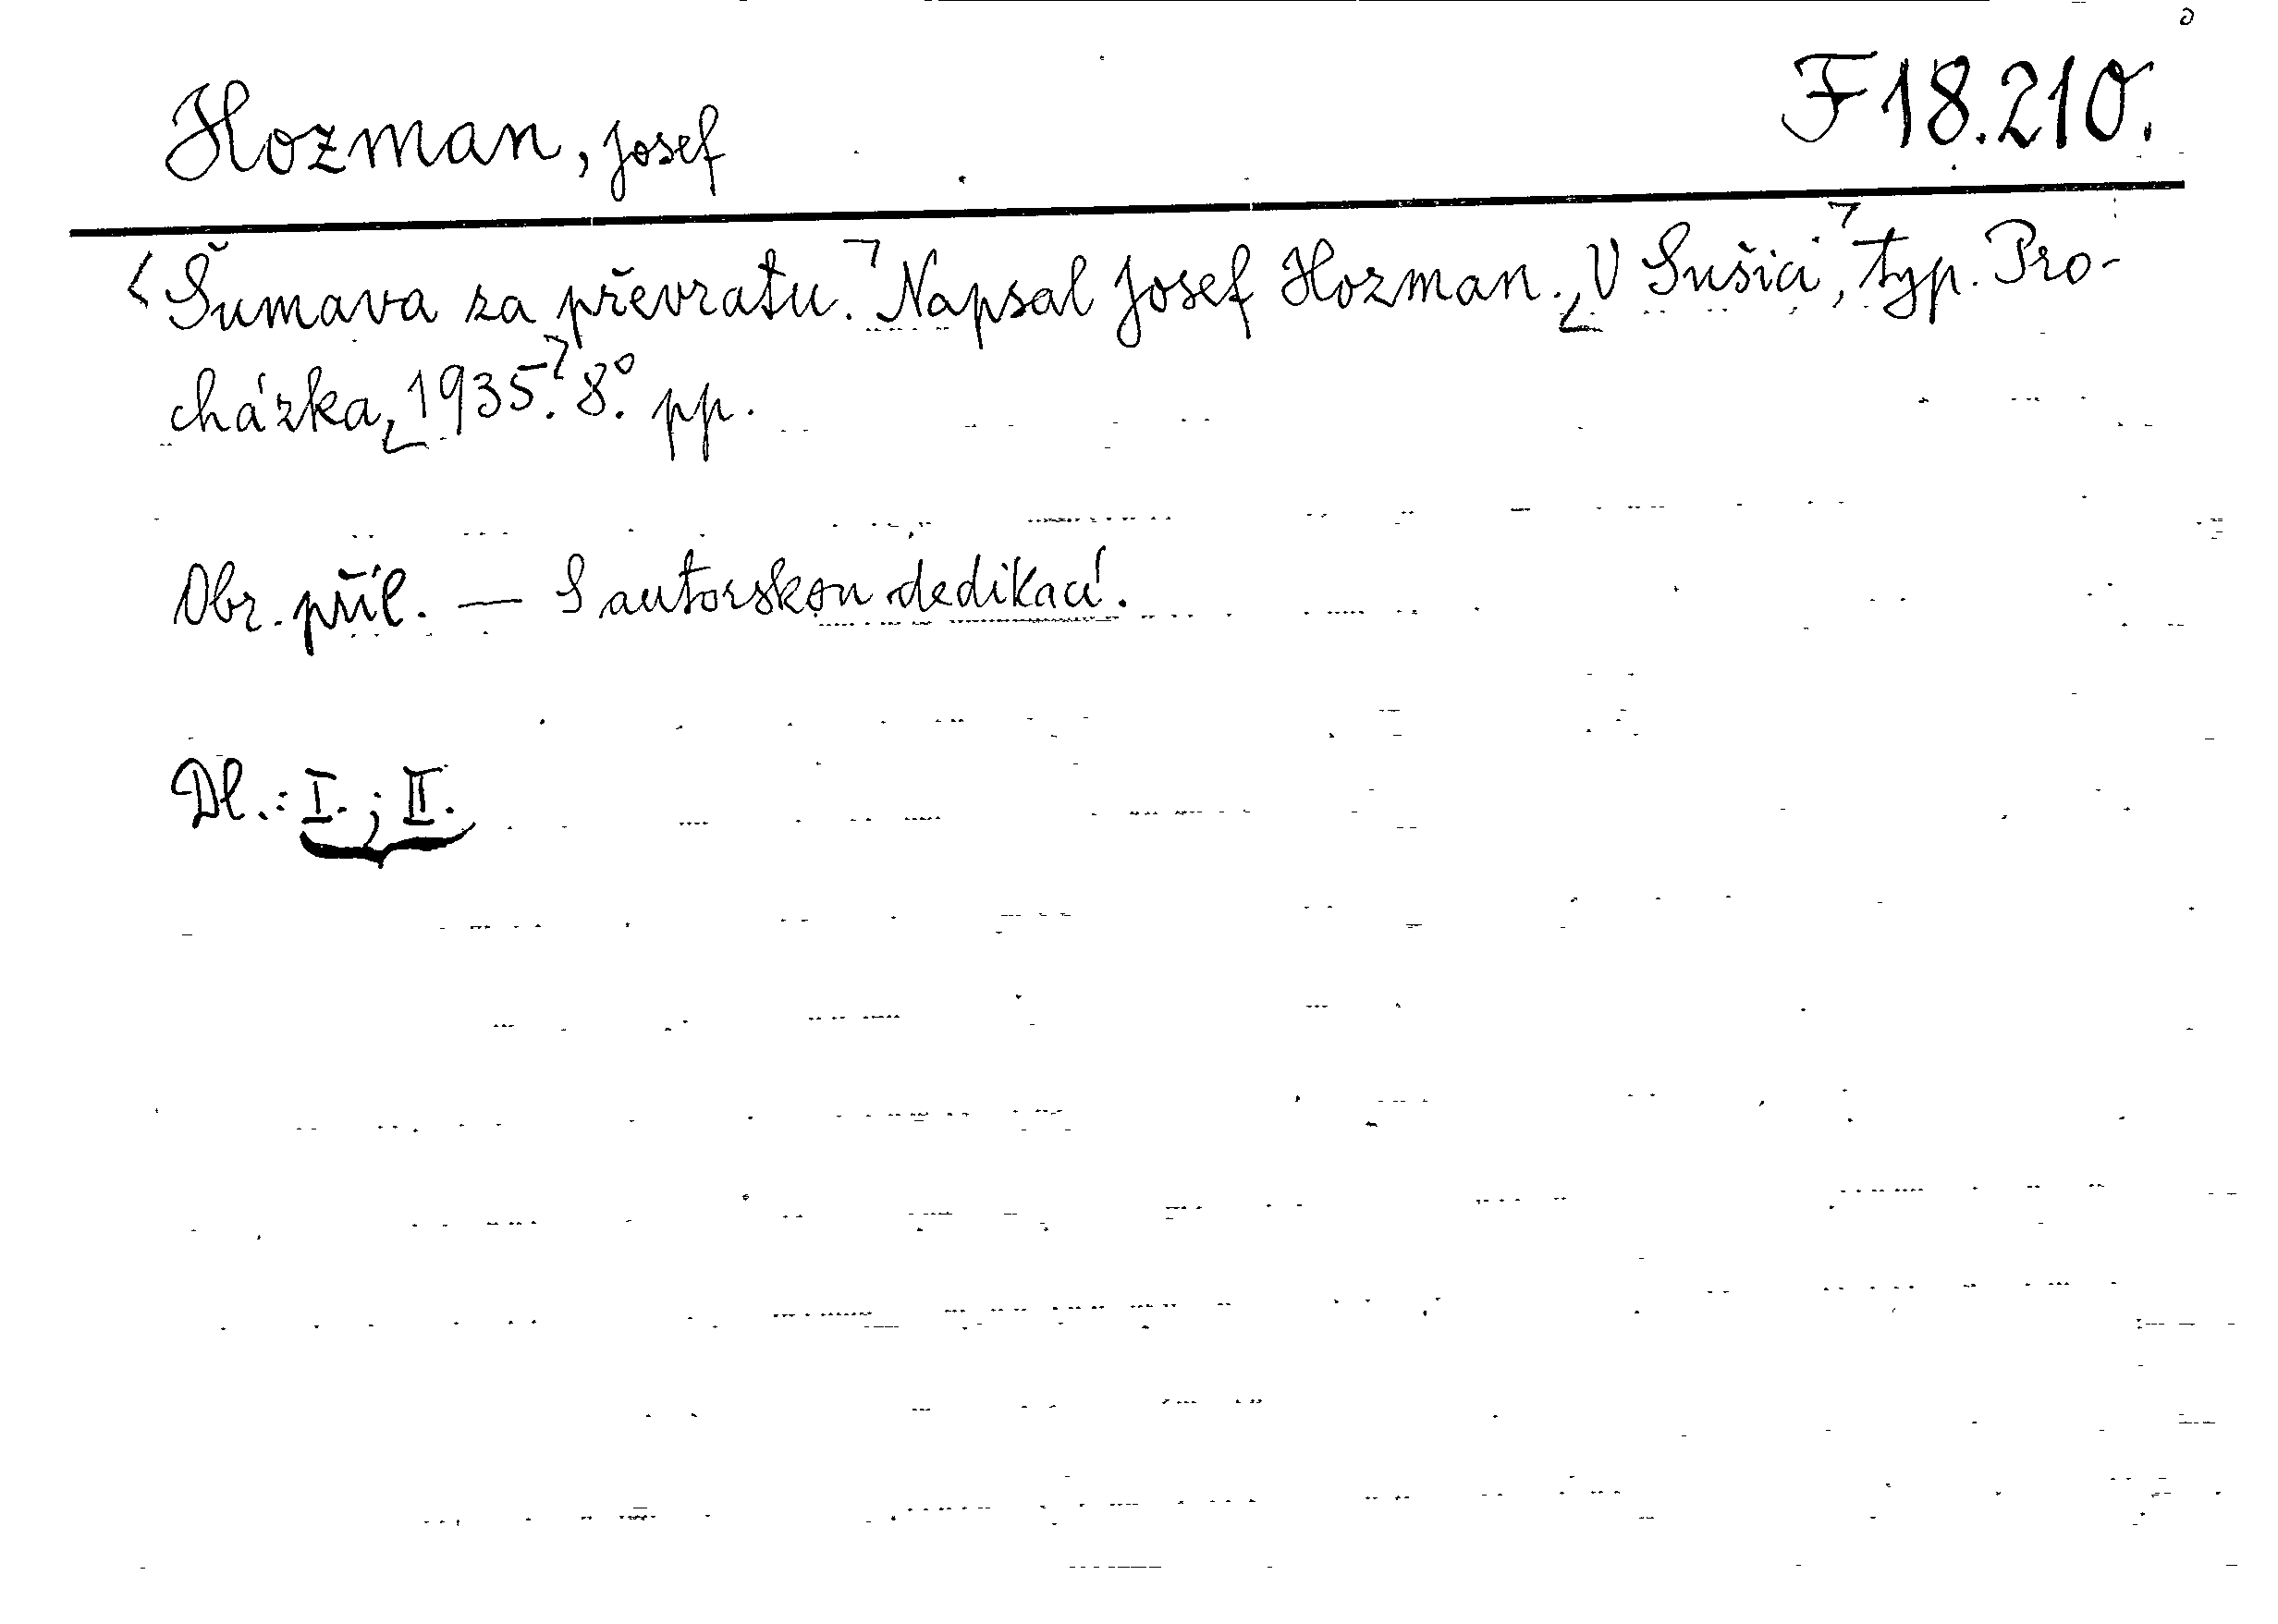 Hozman, Josef
F 18.210.
Šumava za převratu. Napsal Josef Hozman. V Sušici, typ. Pro-
cházka, 1935. 8°. pp.
Obr. příl. — S autorskou dedikací.
Dl.: I.; II.